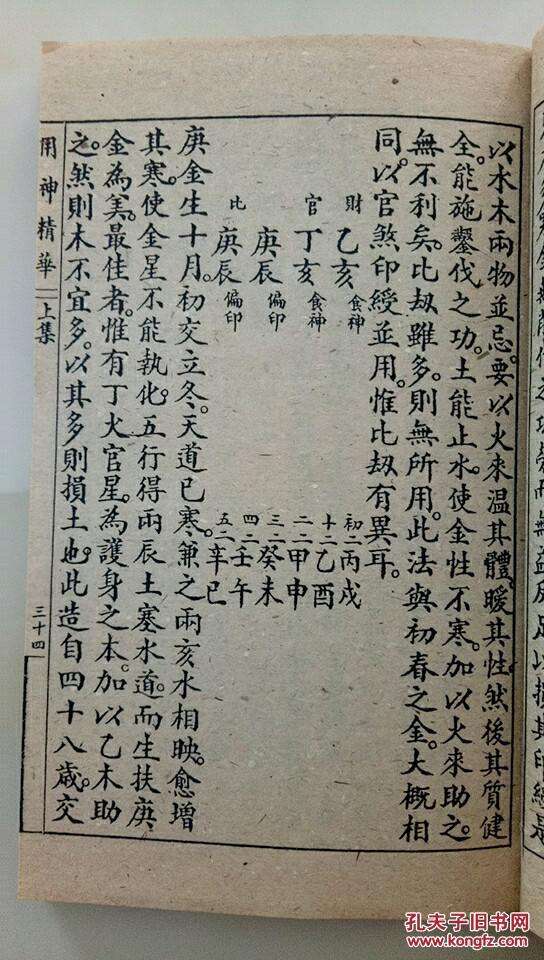 以水木兩物並忌。要以火來溫其體。暖其性。然後其質健
全。能施鑿伐之功。土能止水。使金性不寒。加以火來助之。
無不利矣。比刼雖多。則無所用。此法與初春之金。大概相
同。以官煞印綬並用。惟比刼有異耳。
財 乙亥 食神
官 丁亥 食神
庚辰 偏印
比 庚辰 偏印
初二 丙戌
十二 乙酉
二二 甲申
三二 癸未
四二 壬午
五二 辛巳
庚金生十月。初交立冬。天道已寒。兼之兩亥水相映。愈增
其寒。使金星不能執化。五行得兩辰土塞水道。而生扶庚
金為美。最佳者。惟有丁火官星。為護身之本。加以乙木助
之。然則木不宜多。以其多則損土也。此造自四十八歲。交
用神精華 上集
三十四
孔夫子旧书网
www.kongfz.com